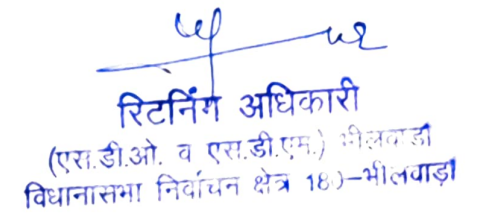 रिटर्निंग अधिकारी
(एस.डी.ओ. व एस.डी.एम.) भीलवाडा
विधानासभा निर्वाचन क्षेत्र 18 )-भीलवाड़ा